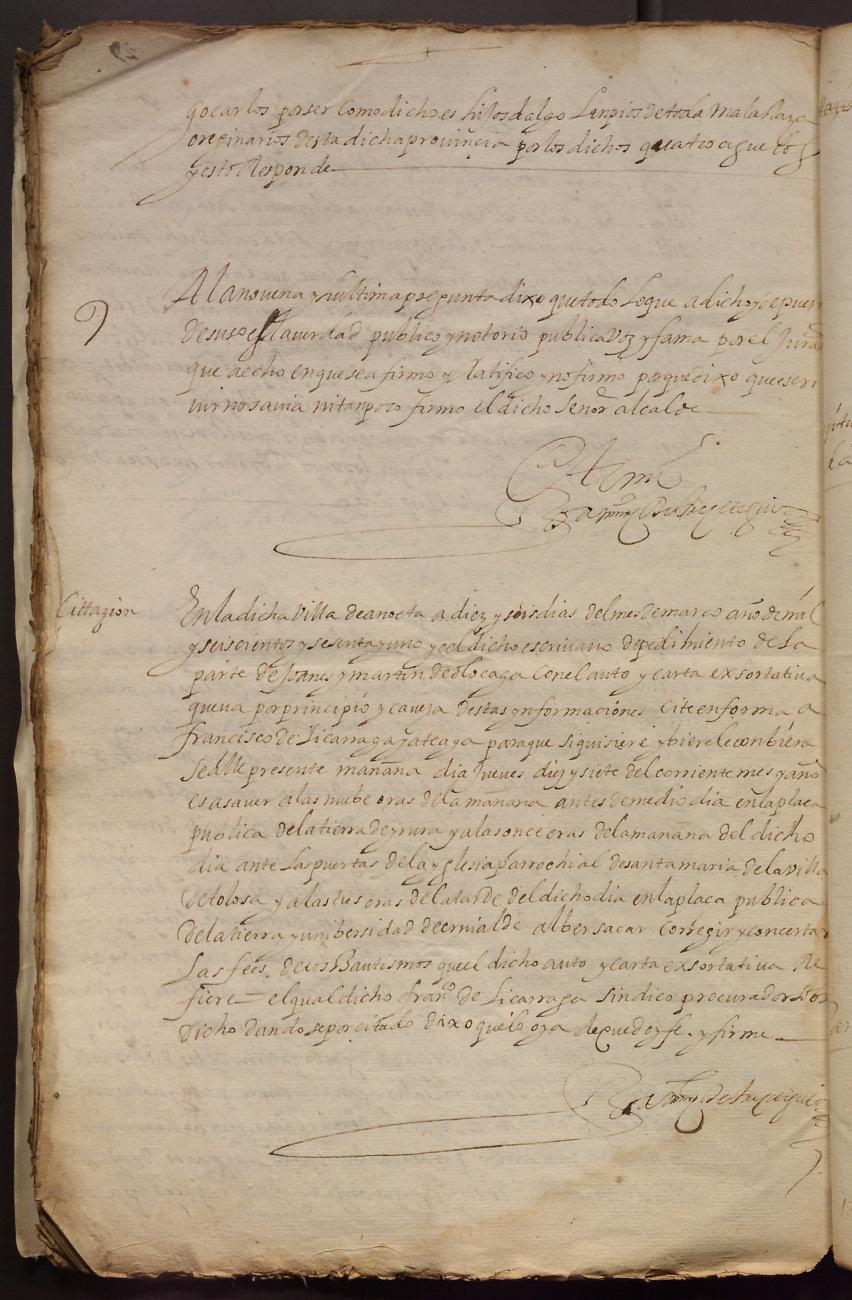 gocarlos por ser como dicho es hijosdalgo Linpios de toda mala Raza
oreginarios desta dicha provinçia por los dichos quatro aguelos
y esto Responde
9
A la novena y ultima pregunta dixo que todo Lo que a dicho y depues
desuso es La verdad publico y notorio publica voz y fama por el Jura
que a echo en que se afirmo y Ratifico y no firmo porque dixo que escri
uir no savia ni tanpoco firmo el dicho Señor alcalde
Ante mi
Cittaçion
En la dicha Villa de anoeta a diez y seis dias del mes de março año de mil
y seiscientos y sesenta y uno yo el dicho escriuano de pedimiento de La
parte de Joanes y martin de olocaga con el auto y carta exsortativa
que va por principio y caveza destas ynformaciones Cite en forma a
françisco de Liçarraga para que si quisiere y biere le conbiene
se alle presente mañana dia Jueves diez y siete del corriente mes y año
es a saver a las nuebe oras de la mañana antes de medio dia en la plaça
publica de la tierra de yrura y a las once oras de la mañana del dicho
dia ante Las puertas de la yglesia parrochial de santa maria de la villa
de tolosa y a las tres oras de la tarde del dicho dia en la plaça publica
de la tierra y unibersidad de ernialde al ber sacar Corregir y concertar
Las fees de los Bautismos que el dicho auto y carta exsortativa Re
fiere el qual dicho fran.co de Liçarraga sindico procurador
dicho dandose por citado dixo que lo oya de que doy fe y firme